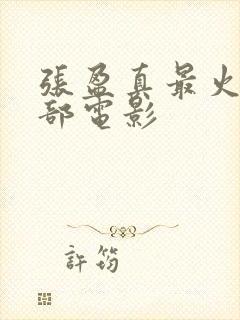 張盈真最火
部電影
許筠